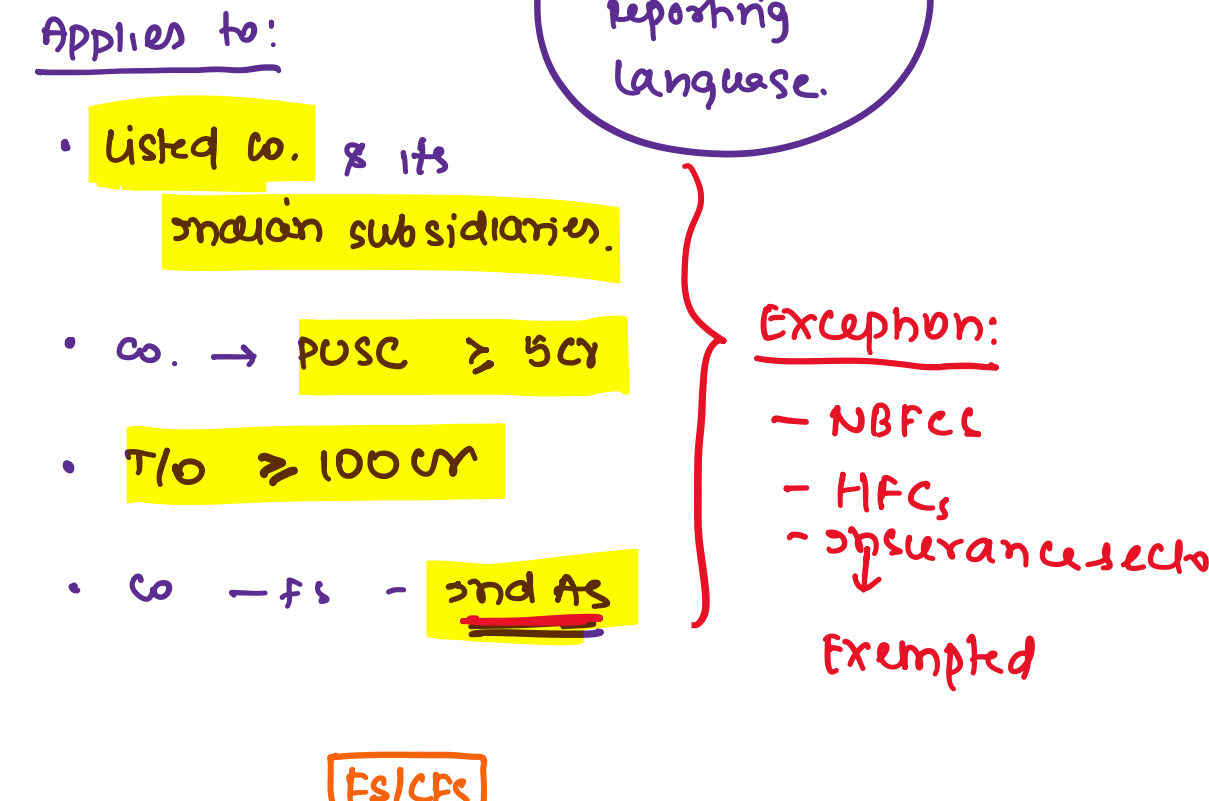 Reporting
Language.
Applies to:
• Listed Co. & its
Indian subsidiaries.
• Co. → PUSC ≥ 5Cr
• T/O ≥ 100 Cr
• Co — FS - Ind AS
Exception:
— NBFCs
- HFCs
- Insurance secto
↓
Exempted
FS/CFS